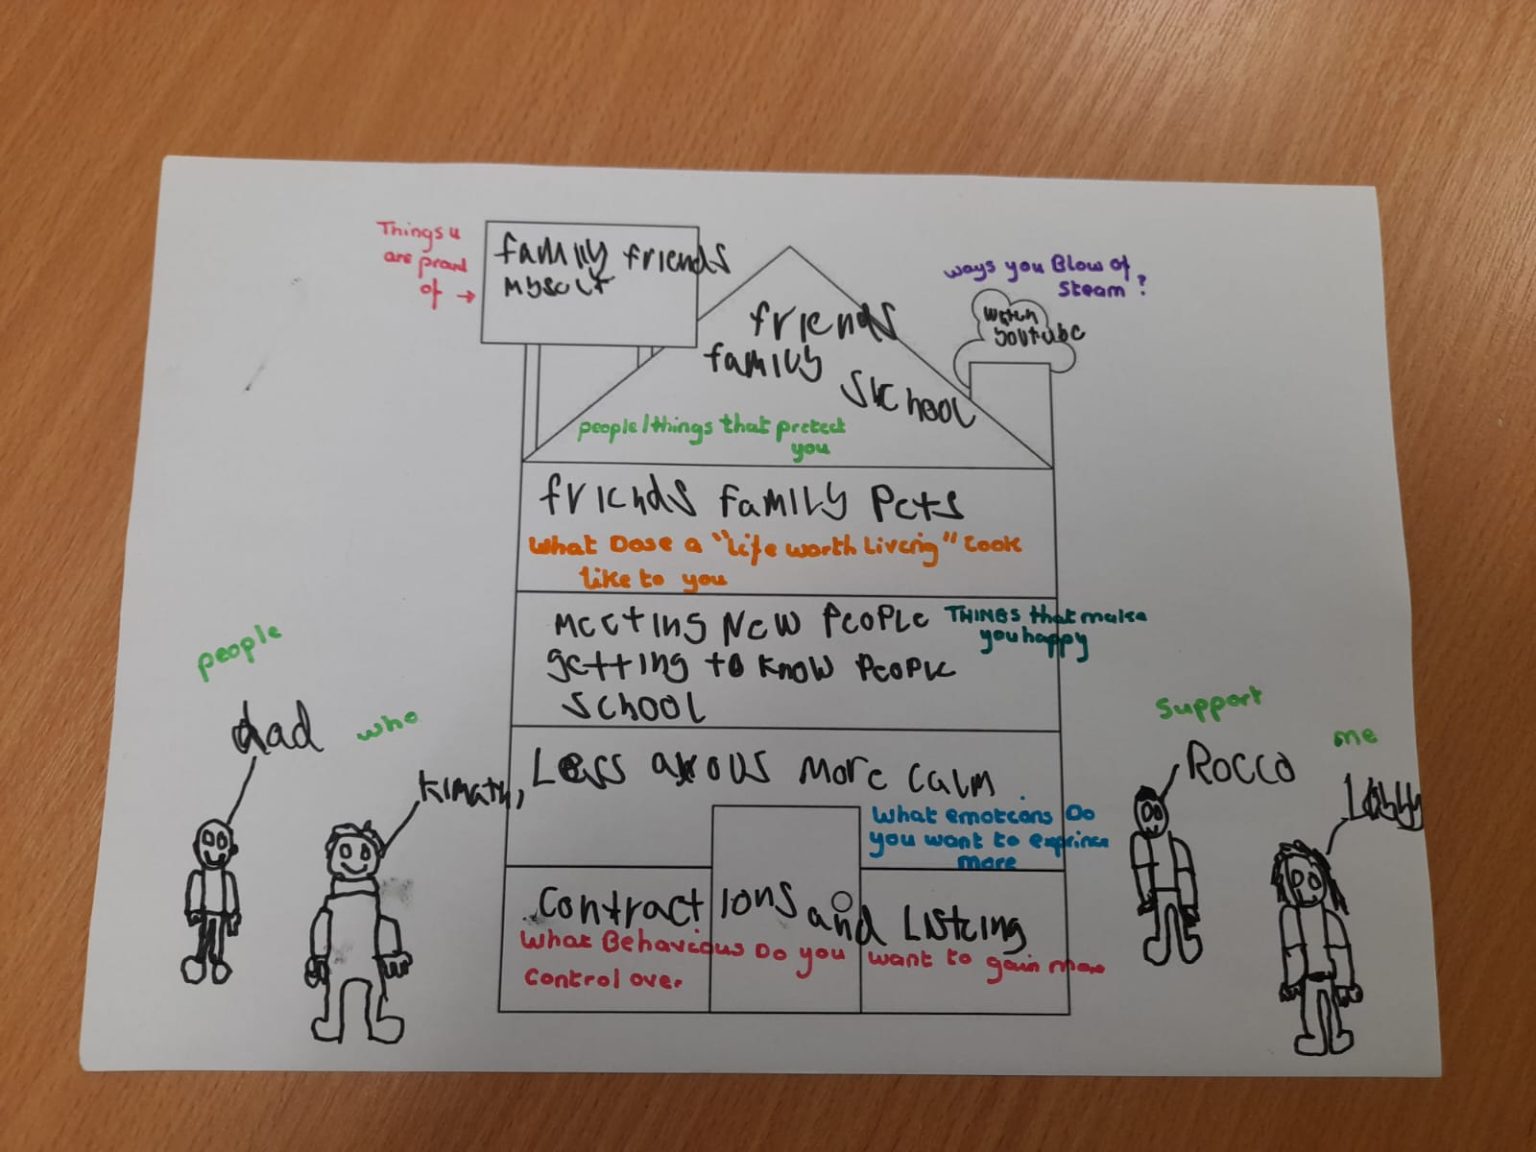 Things u
are proud
of →
family friends
myself
ways you Blow of
Steam?
watch
youtube
friends
family
SKchool
people/things that pretect
you
friends family Pets
What Dose a "life worth Living" Look
like to you
Meeting New People
getting to know People
School
THINGS that make
you happy
people
who
support
me
dad
Rocco
Less axous More calm
What emotions Do
you want to exprince
more
contractions and Listing
What Behavious Do you want to gain more
control over.